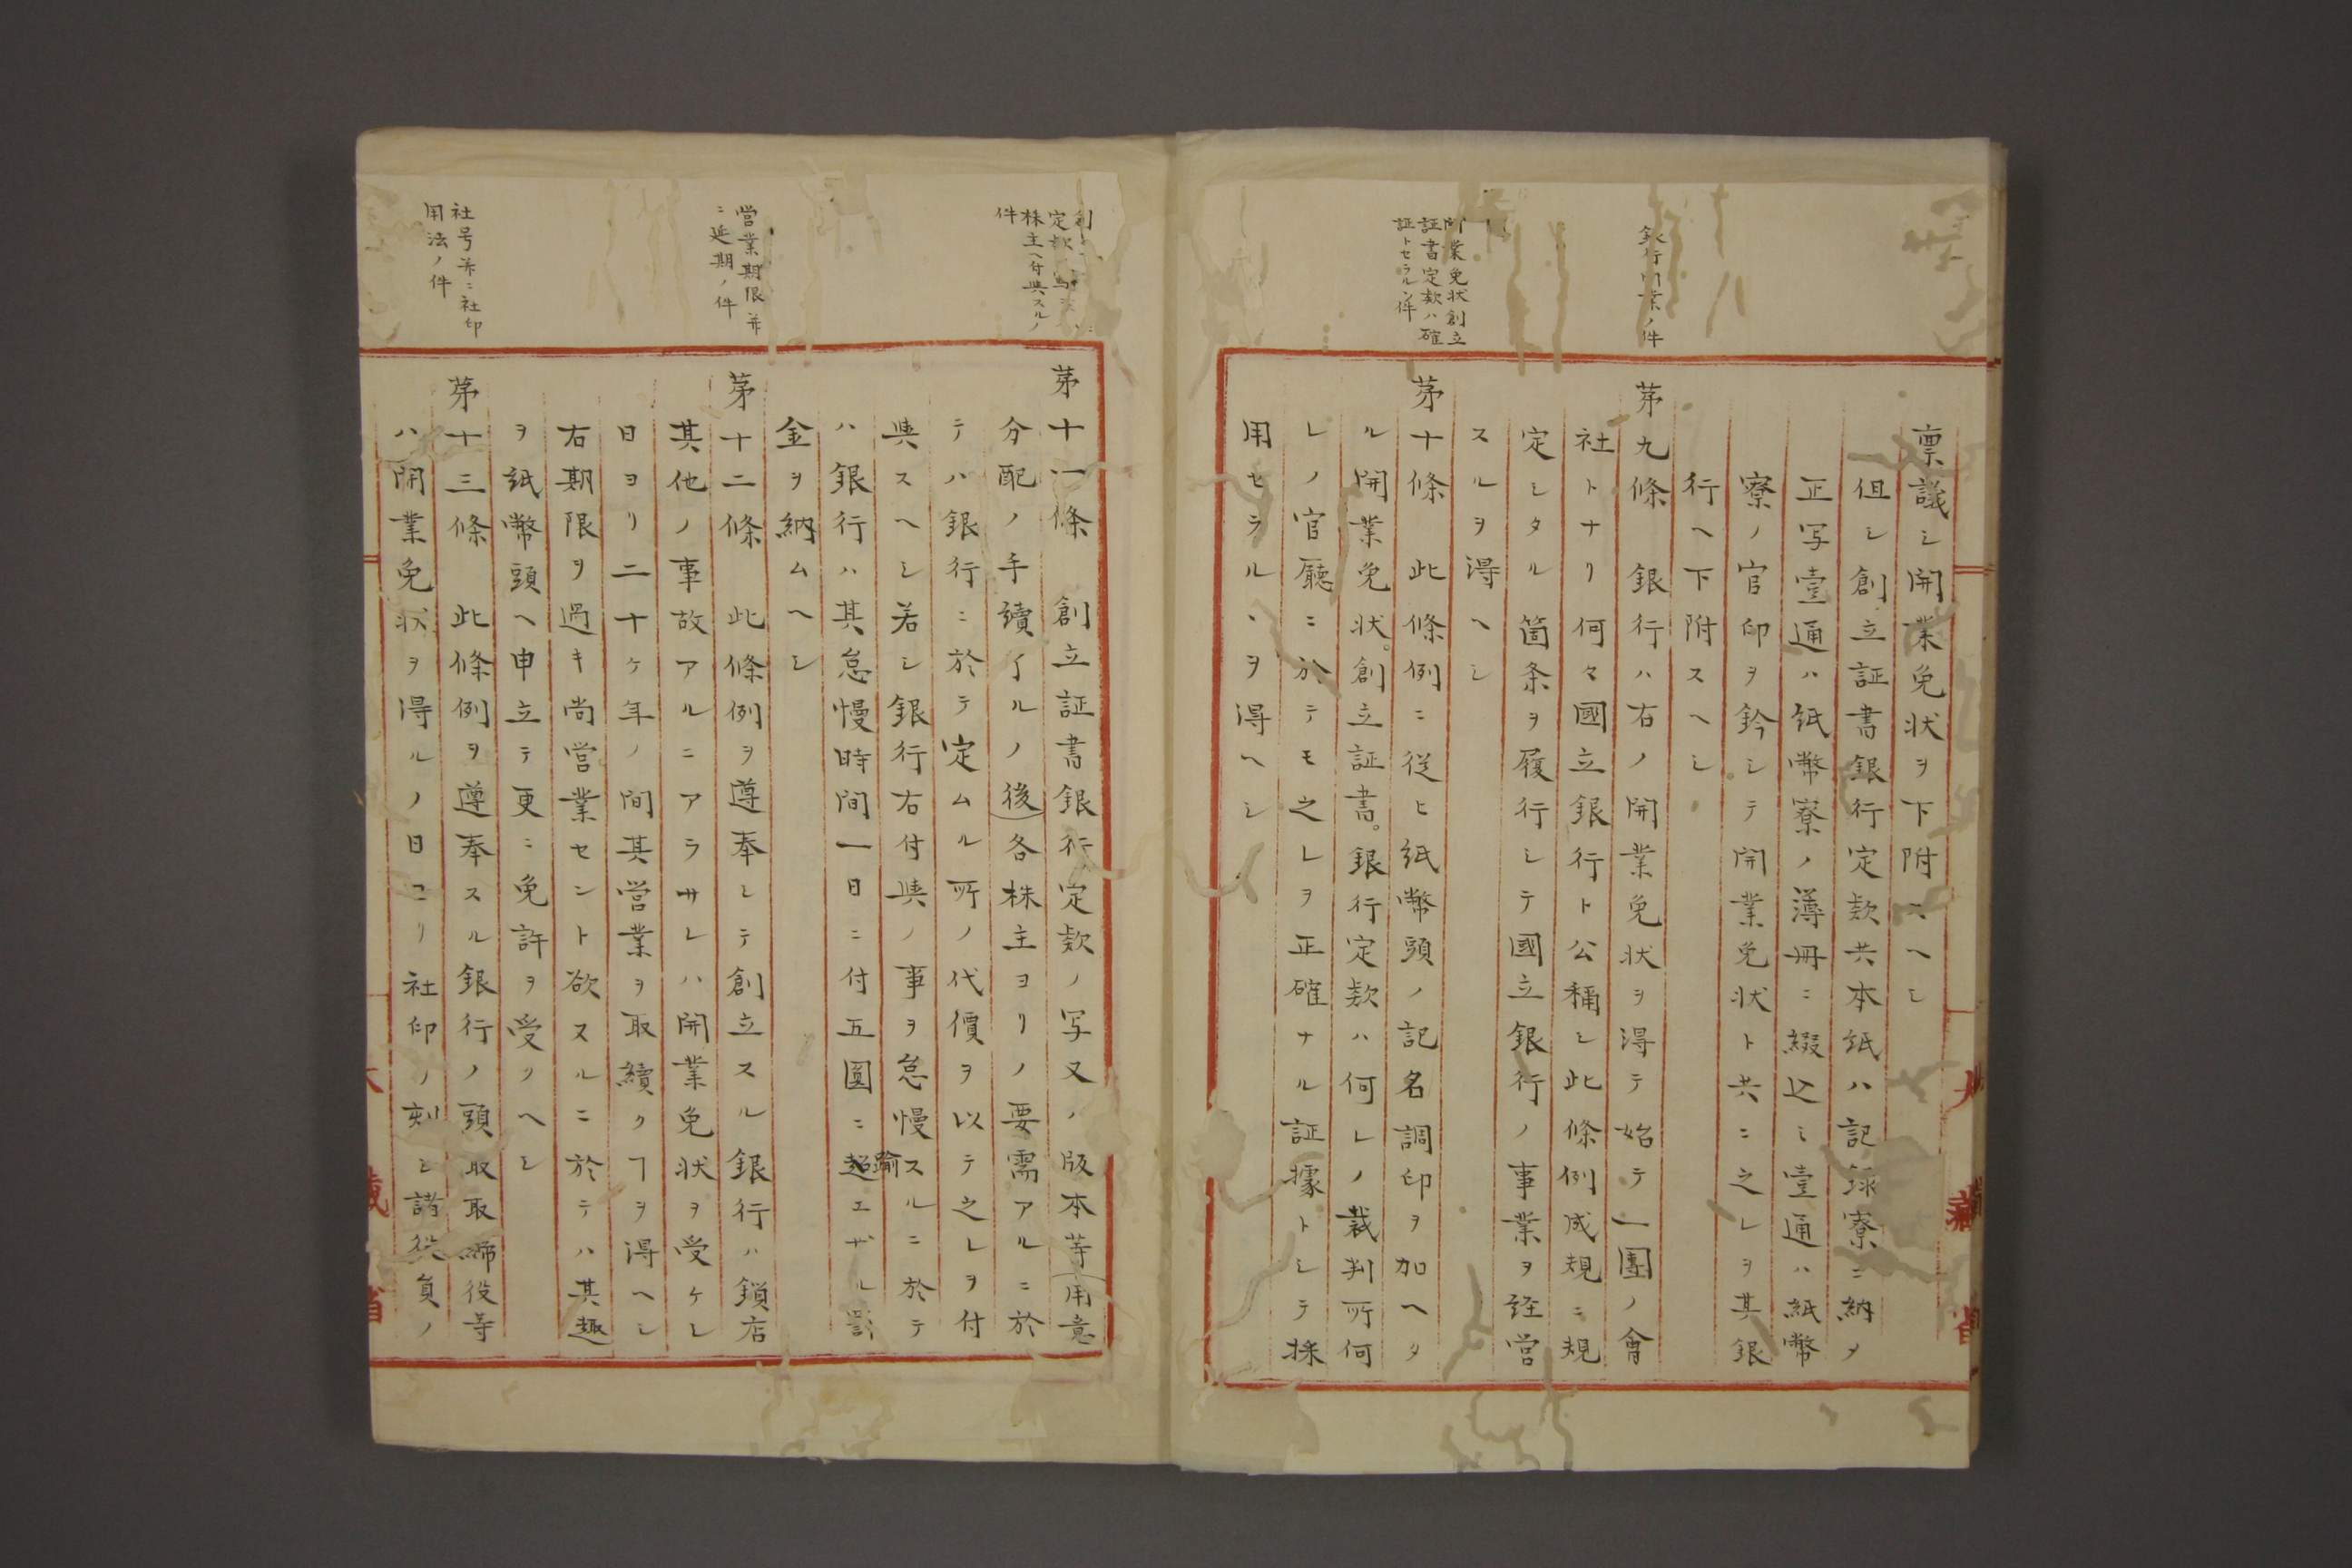 稟議シ開業免状ヲ下附スヘシ
但シ創立証書銀行定款共本紙ハ記録寮ニ納メ
正写壹通ハ紙幣寮ノ薄冊ニ綴込ミ壹通ハ紙幣
寮ノ官印ヲ鈐シテ開業免状ト共ニ之レヲ其銀
行ヘ下附スヘシ
銀行開業ノ件
茅九條 銀行ハ右ノ開業免状ヲ得テ始テ一團ノ會
社トナリ何々國立銀行ト公稱シ此條例成規ニ規
定シタル箇条ヲ履行シテ國立銀行ノ事業ヲ経営
スルヲ得ヘシ
開業免状創立
証書定款ハ確
証トセラルヽ件
茅十條 此條例ニ従ヒ紙幣頭ノ記名調印ヲ加ヘタ
ル開業免状。創立証書。銀行定款ハ何レノ裁判所何
レノ官廳ニ於テモ之レヲ正確ナル証據トシテ採
用セラルヽヲ得ヘシ
大藏省
定款
株主ヘ付與スルノ
件
茅十一條 創立証書銀行定款ノ写又ノ版本等用意
分配ノ手續了ルノ後各株主ヨリノ要需アルニ於
テハ銀行ニ於テ定ムル所ノ代價ヲ以テ之レヲ付
與スヘシ若シ銀行右付與ノ事ヲ怠慢スルニ於テ
ハ銀行ハ其怠慢時間一日ニ付五圓ニ超踰エザル罰
金ヲ納ムヘシ
営業期限并
ニ延期ノ件
茅十二條 此條例ヲ遵奉シテ創立スル銀行ハ鎖店
其他ノ事故アルニアラサレハ開業免状ヲ受ケシ
日ヨリ二十ケ年ノ間其営業ヲ取續クヿヲ得ヘシ
右期限ヲ過キ尚営業セント欲スルニ於テハ其趣
ヲ紙幣頭ヘ申立テ更ニ免許ヲ受クヘシ
社号并ニ社印
用法ノ件
茅十三條 此條例ヲ遵奉スル銀行ノ頭取取締役等
ハ開業免状ヲ得ルノ日ヨリ社印ノ刻シ諸役員ノ